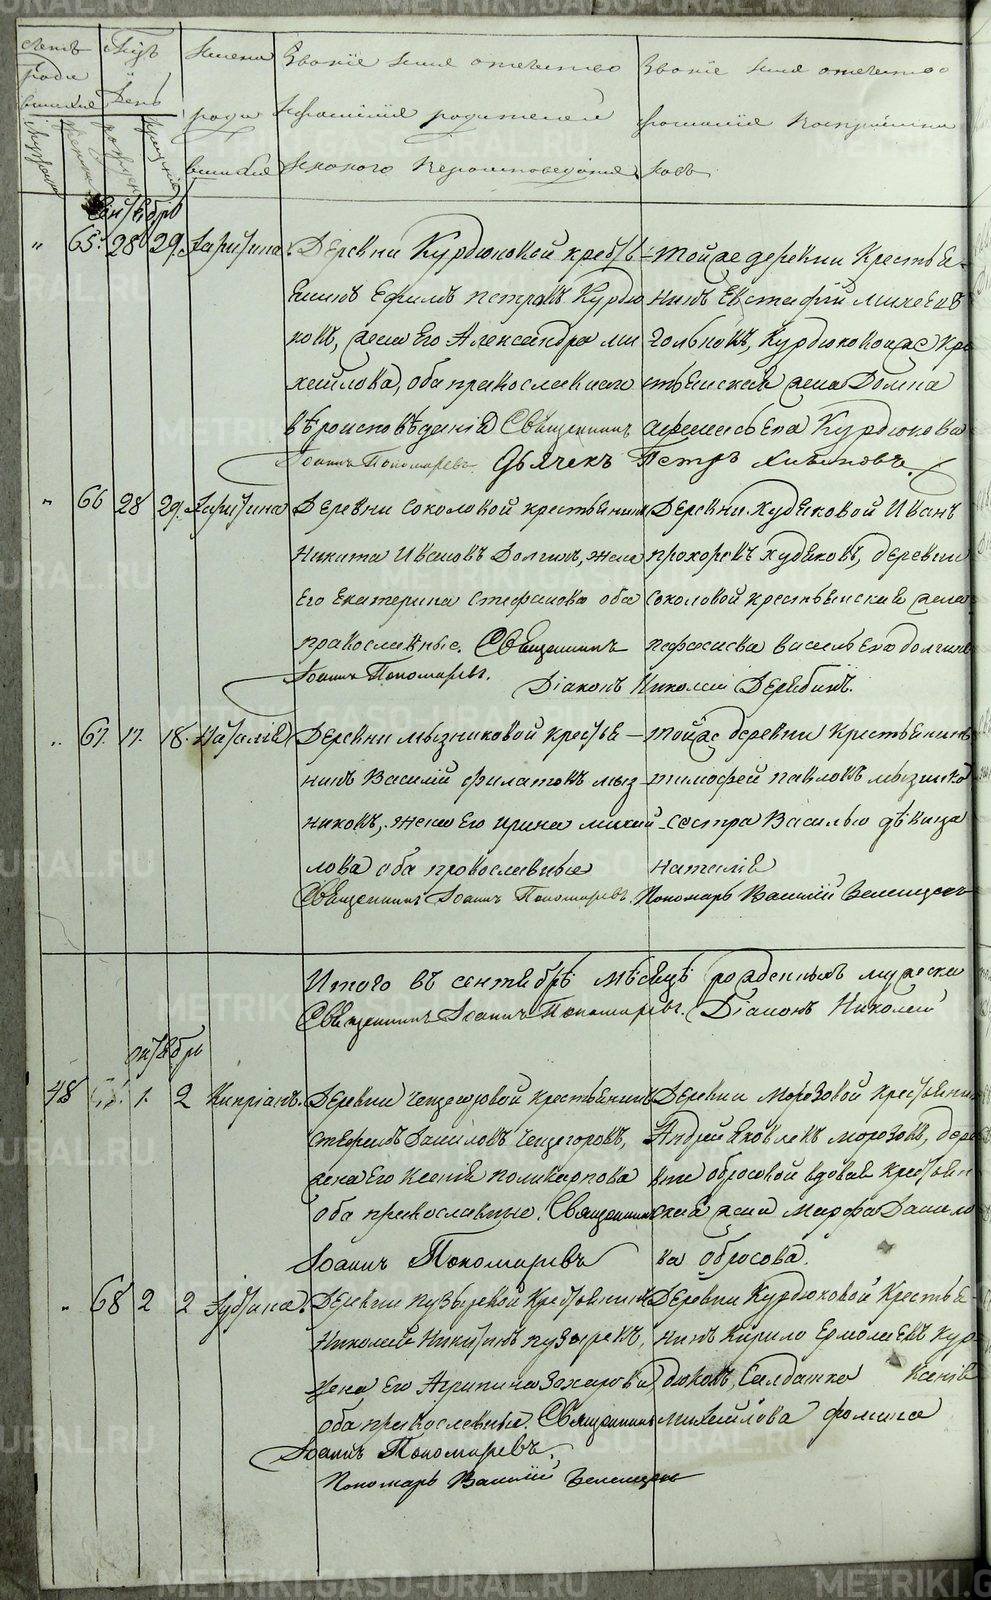 Счетъ родившихся
Мѣсяцъ и день
Имена родившихся
Званіе имя отчество и фамилія родителей и какого вѣроисповеданія
Званіе имя отчество фамилія воспріемниковъ
сентябрь
" 65. 28 29. Харитина.
Деревни Курдюковой кресть-
янинъ Ефимъ Петровъ Курдю
ковъ, жена его Александра Ми
хайлова, оба православнаго
вѣроисповѣданія Священникъ
Іоаннъ Пономаревъ. Дьячекъ Петръ
тойже деревни Крестья-
нинъ Евстафій Михеевъ
Курдюковой же Кре
стьянская жена Домна
Курдюкова
" 66 28 29. Харитина
Деревни Соколовой крестьянинъ
Никита Ивановъ Долгинъ, жена
его Екатерина Стефанова оба
православные. Священникъ
Іоаннъ Пономаревъ.
Деревни Худяковой Иванъ
Прохоровъ Худяковъ, деревни
Соколовой крестьянская жена
Васильева Долгина
Діаконъ Николай Дерябинъ.
" 67. 17. 18. Наталія
Деревни Мызниковой крестья-
нинъ Василій Филатовъ Мыз-
никовъ, жена его Ирина Михай-
лова оба православные
Священникъ Іоаннъ Пономаревъ.
тойже деревни Крестьянинъ
Тимофей Павловъ Мызнико
Сестра Василью дѣвица
Наталія
Пономарь Василій
Итого въ сентябрѣ мѣсяцѣ рожденныхъ мужеска
Священникъ Іоаннъ Пономаревъ. Діаконъ Николай
октябрь
48 1. 2 Кипріанъ.
Деревни крестьянинъ
жена его Ксенія Поликарпова
оба православные. Священникъ
Іоаннъ Пономаревъ
Деревни Морозовой крестьянинъ
Андрей Яковлевъ Морозовъ, дере
вни Обросовой вдовая крестьян
ская жена Марфа Данило
ва Обросова.
" 68 2 2
Деревни Пузыревой Крестьянинъ
Николай Никитинъ Пузыревъ,
жена его Агрипина Захарова
оба православные. Священникъ
Іоаннъ Пономаревъ.
Пономарь Василій
Деревни Курдюковой Крестья-
нинъ Кирило Ермолаевъ Кур
дюковъ, Салдатка Ксенія
Михайлова Фомина
METRIKI.GASO-URAL.RU